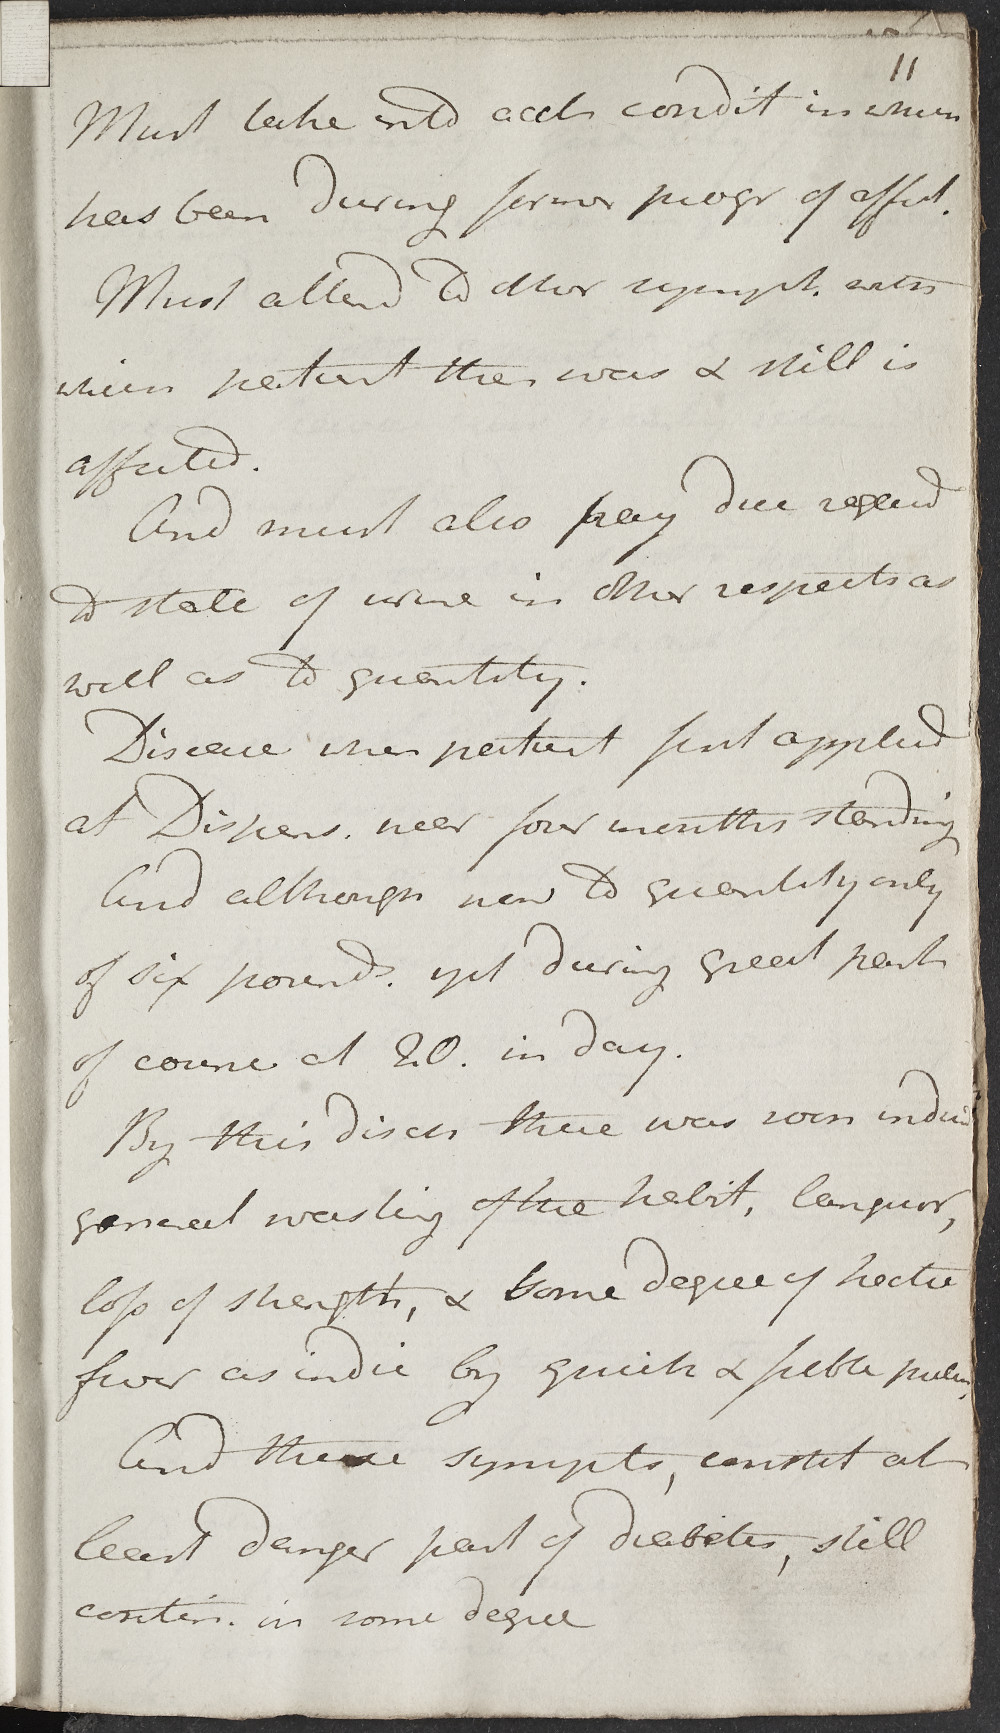 11
Must take into acct condit in when
has been During former progr of affect.
Must attend to other sympt. with
when patient then was & still is
affected.
And must also pay due regard
to state of urine in other respects as
well as to quantity.
Disease when patient first applied
at Dispens. near four months standing
And although now to quantity only
of six pounds. yet during great part
of course at 20. in day.
By this disch there was soon induc
general wasting of the habit, languor,
loss of strength, & some degree of hectic
fever as indic by quick & feble pulse,
And these sympts, constit at
least danger part of diabetes, still
contin. in some degree